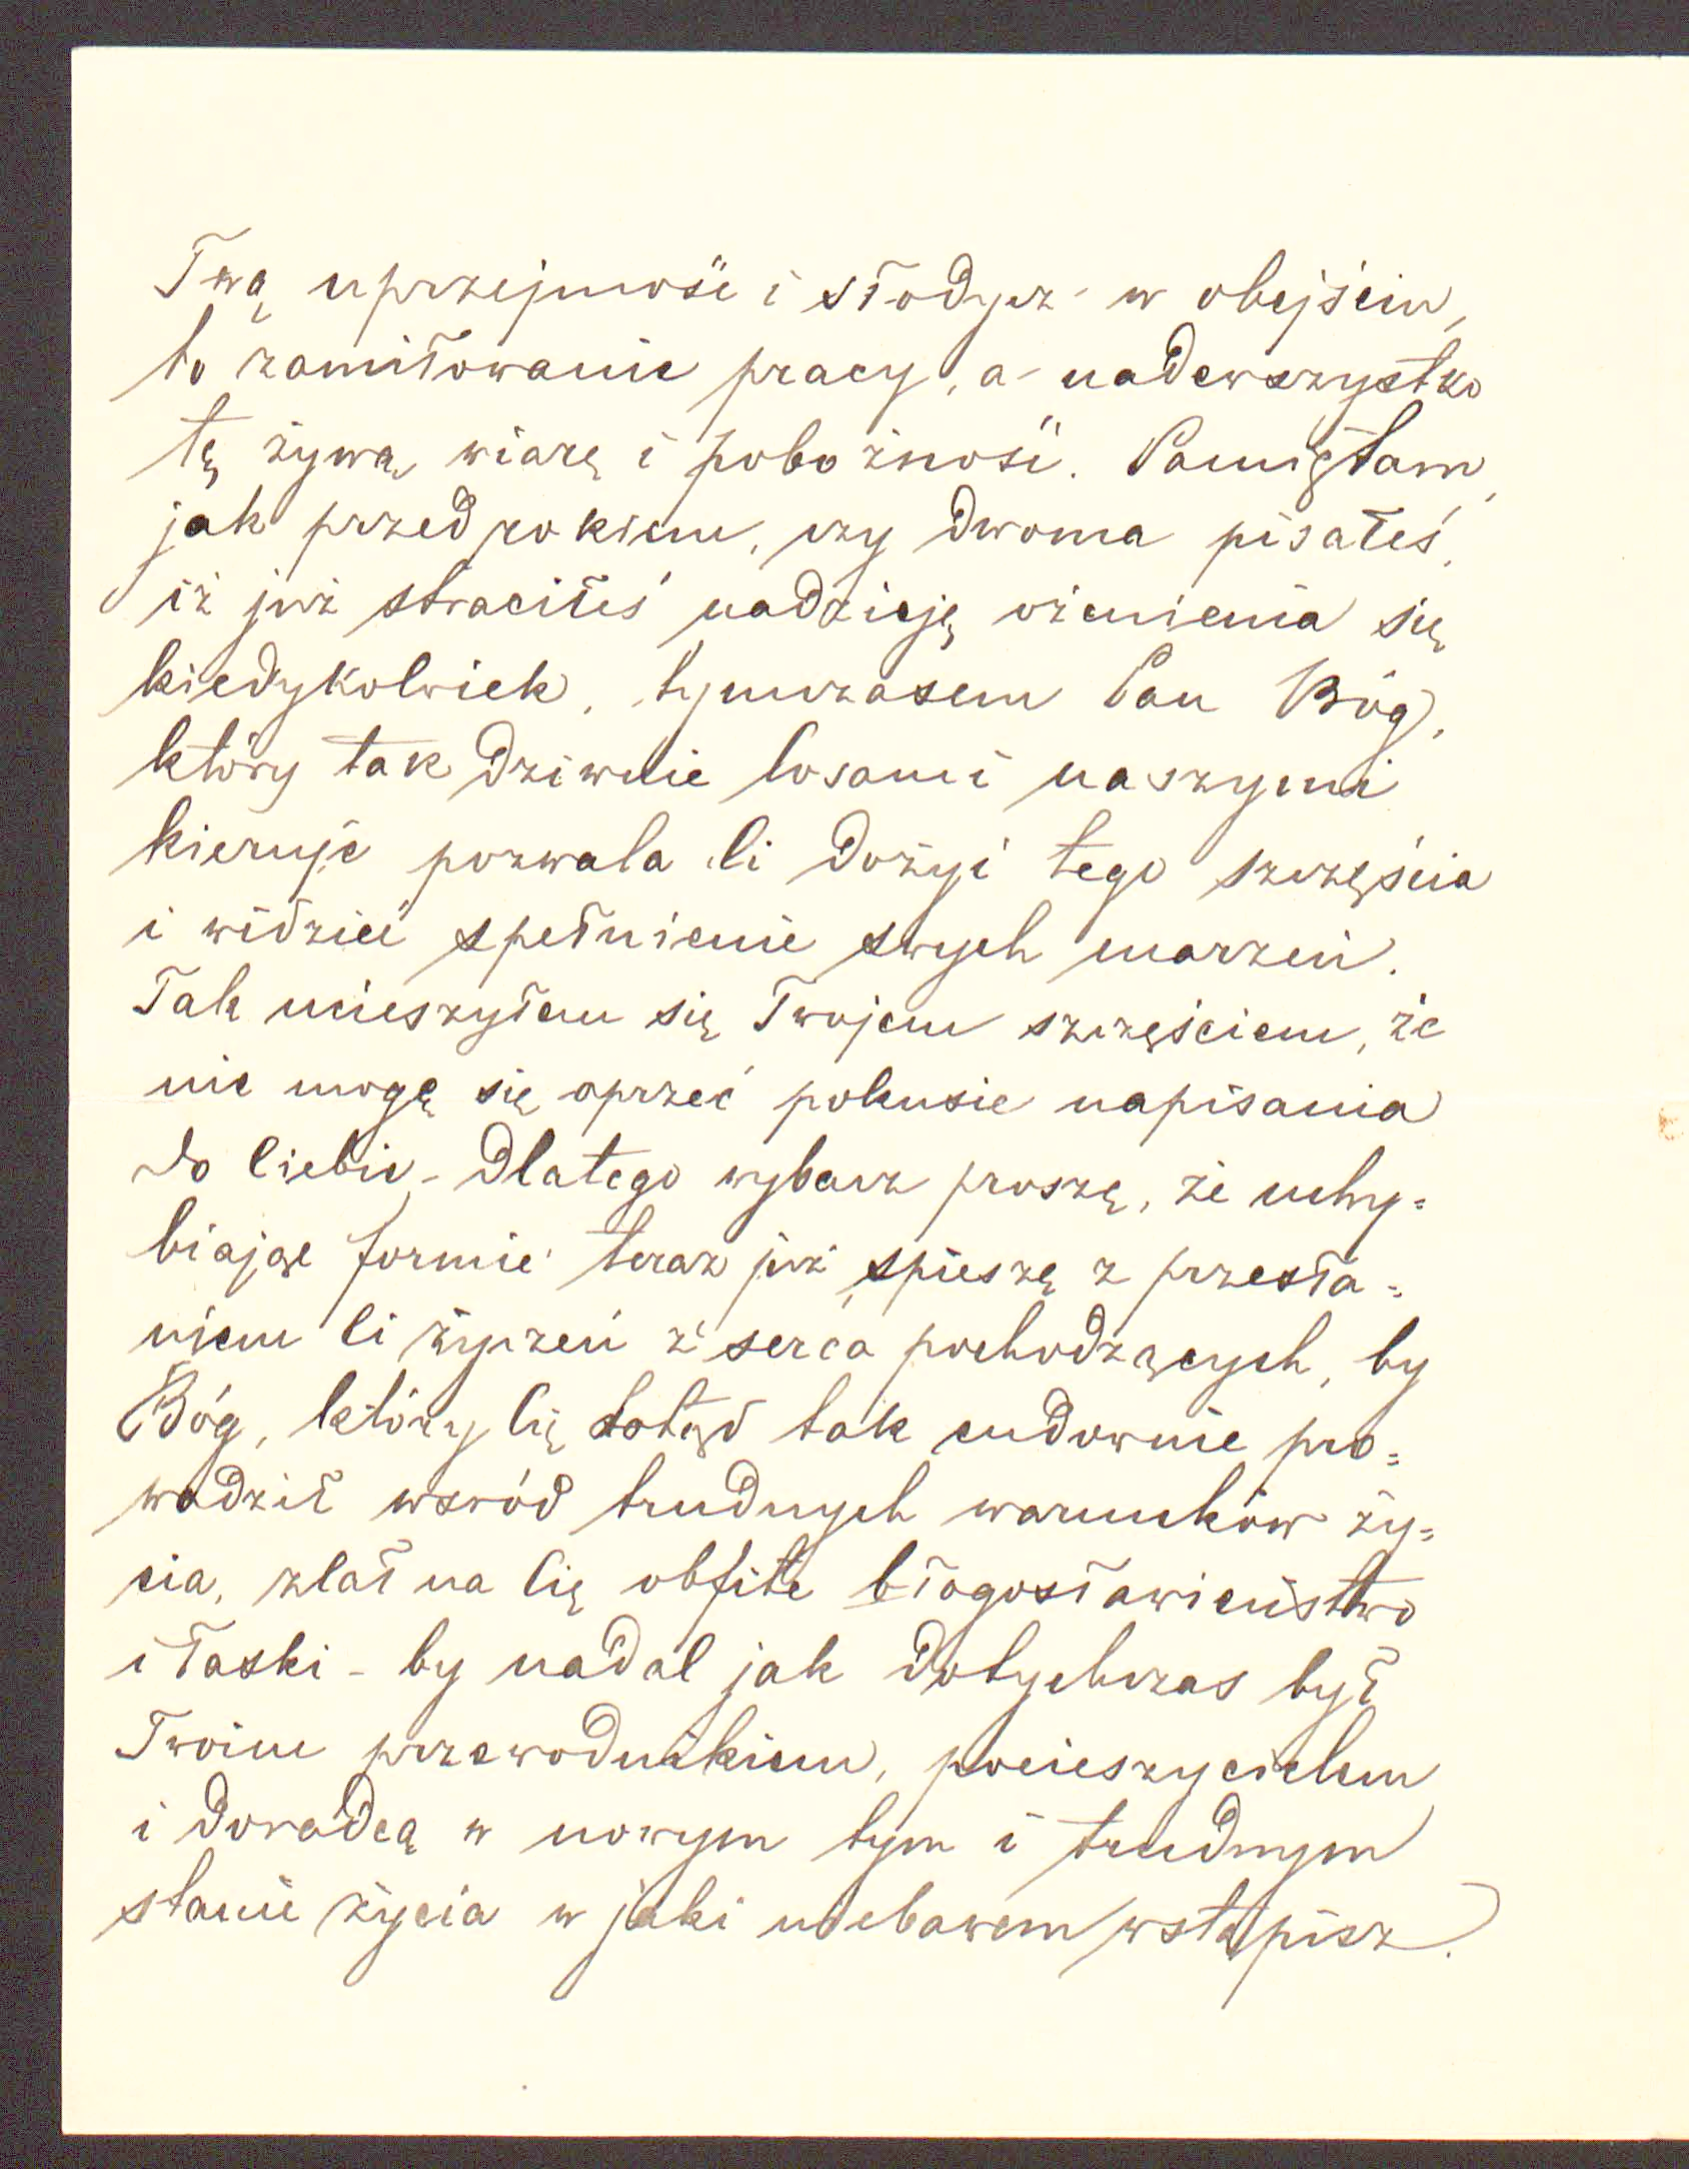 Twą uprzejmość i słodycz w obejściu,
to zamiłowanie pracy, a nadewszystko
tę żywą wiarę i pobożność. Pamiętam,
jak przed rokiem, czy dwoma pisałeś,
iż już straciłeś nadzieję ożenienia się
kiedykolwiek, tymczasem Pan Bóg,
który tak dziwnie losami naszymi
kieruje pozwala Ci dożyć tego szczęścia
i widzieć spełnienie swych marzeń.
Tak ucieszyłem się Twojem szczęściem, że
nie mogę się oprzeć pokusie napisania
do Ciebie - Dlatego wybacz proszę, że uchy=
biając formie teraz już spieszę z przesła=
niem Ci życzeń z serca pochodzących, by
Bóg, który Cię dotąd tak cudownie pro=
wadził wsród trudnych warunków ży=
cia, zlał na Cię obfite błogosławieństwo
i łaski - by nadal jak dotychczas był
Twoim przewodnikiem, pocieszycielem
i doradcą w nowym tym i trudnym
stanie życia w jaki niebawem wstąpisz.